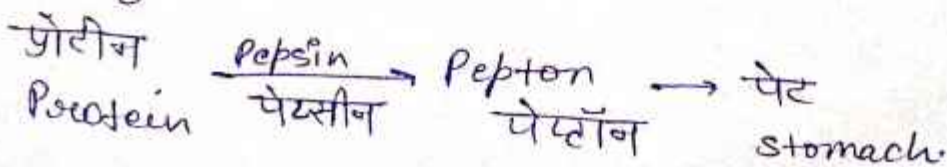 प्रोटीन Pepsin → Pepton → पेट
Protein पेप्सीन पेप्टॉन stomach.